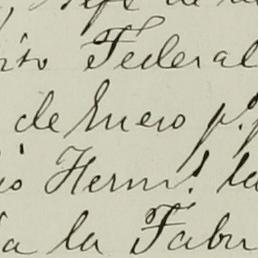 de
Federal
de Enero p.
Herm!
a la Fabr